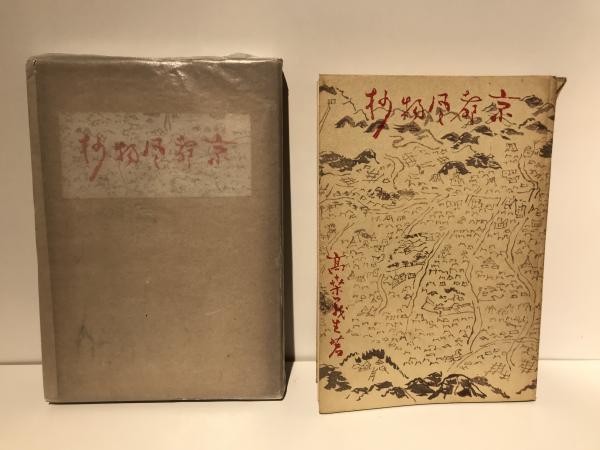 京都風物抄
京都風物抄
高桒義生著